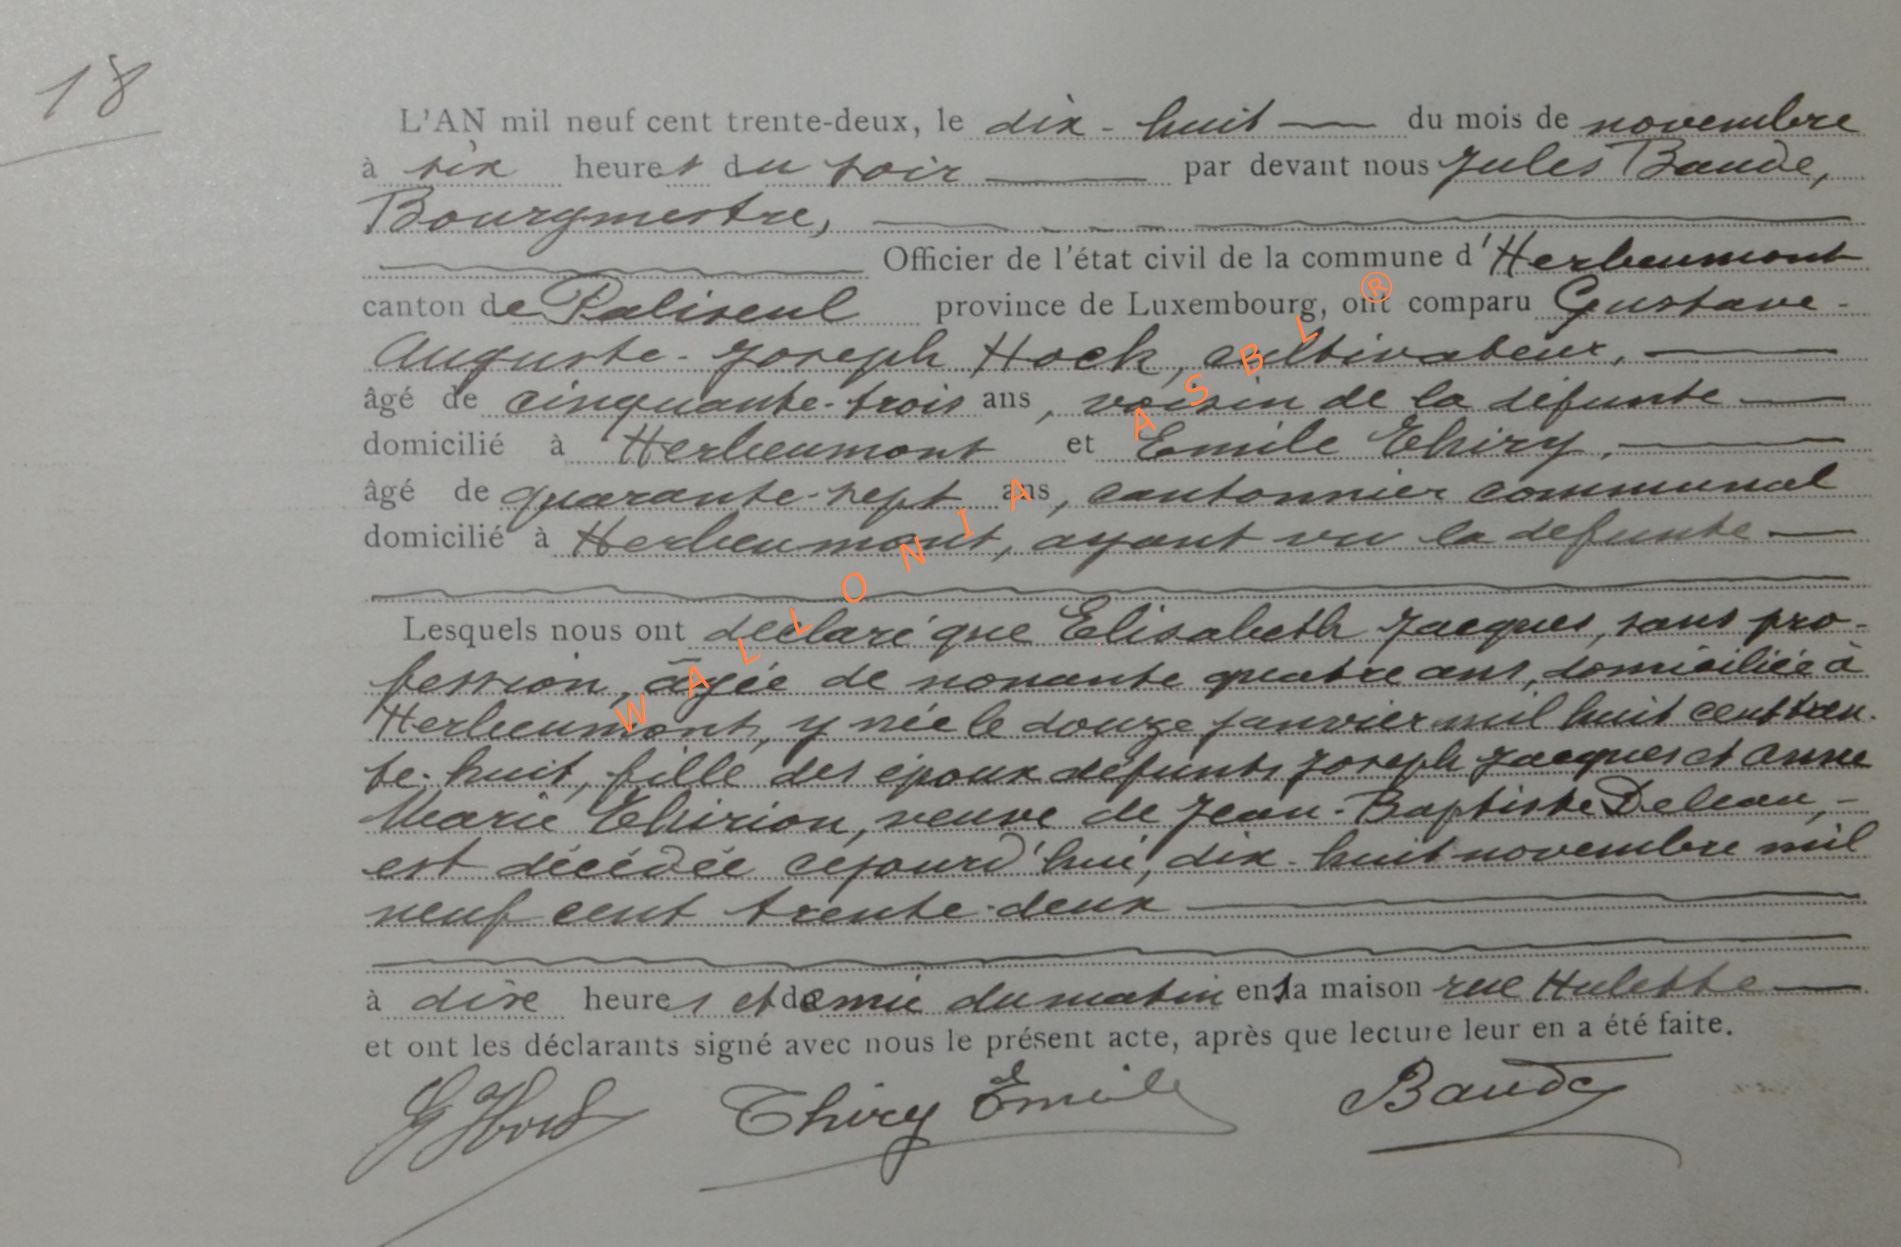 18
L'AN mil neuf cent trente-deux, le dix-huit du mois de novembre
à six heures du soir par devant nous Jules Baude,
Bourgmestre,
Officier de l'état civil de la commune d'Herbeumont
canton de Paliseul province de Luxembourg, ont comparu Gustave-
Auguste-Joseph Hock, cultivateur,
âgé de cinquante-trois ans, voisin de la défunte
domicilié à Herbeumont et Emile Thiry,
âgé de quarante-sept ans, cantonnier communal
domicilié à Herbeumont, ayant vu la défunte
Lesquels nous ont déclaré que Elisabeth Jacques, sans pro-
fession, âgée de nonante quatre ans, domiciliée à
Herbeumont, y née le douze janvier mil huit cent tren-
te-huit, fille des époux défunts Joseph Jacques et Anne
Marie Thirion, veuve de Jean-Baptiste Deleau,-
est décédée cejourd'hui, dix-huit novembre mil
neuf cent trente-deux
à dix heures et demie du matin en sa maison rue Hulette
et ont les déclarants signé avec nous le présent acte, après que lecture leur en a été faite.
G Hock Thiry Emile Baude
WALLONIA ASBL ®